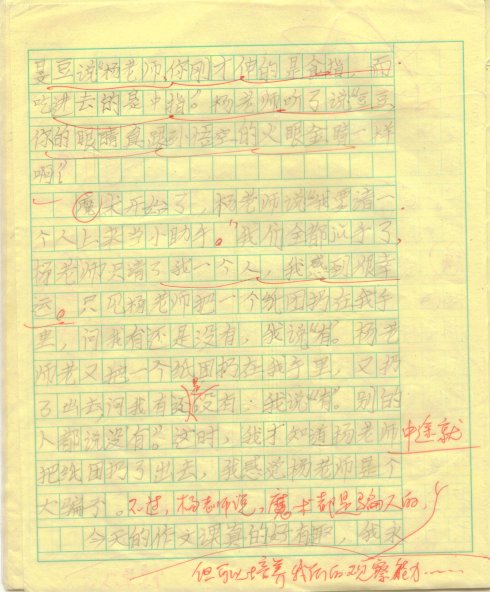 豆说"杨老师,你刚才伸的是食指,而
吃进去的是中指"。杨老师听了说"豆豆
你的眼睛真跟孙悟空的火眼金睛一样
啊!"
魔术开始了,杨老师说"我要请一
个人上来当小助手。"我们全都举手了,
杨老师只请了我一个人,我感到很幸
运。只见杨老师把一个纸团扔在我手
里,问我有还是没有,我说"有"。杨老
师老又把一个纸团扔在我手里,又扔
了出去问我有还是没有,我说"有"。别的
人都说没有"。这时,我才知道杨老师中途就
把纸团扔了出去,我感觉杨老师是个
大骗子。不过,杨老师说,魔术都是骗人的,
但可以培养我们的观察能力……
今天的作文课真的好有趣,我永